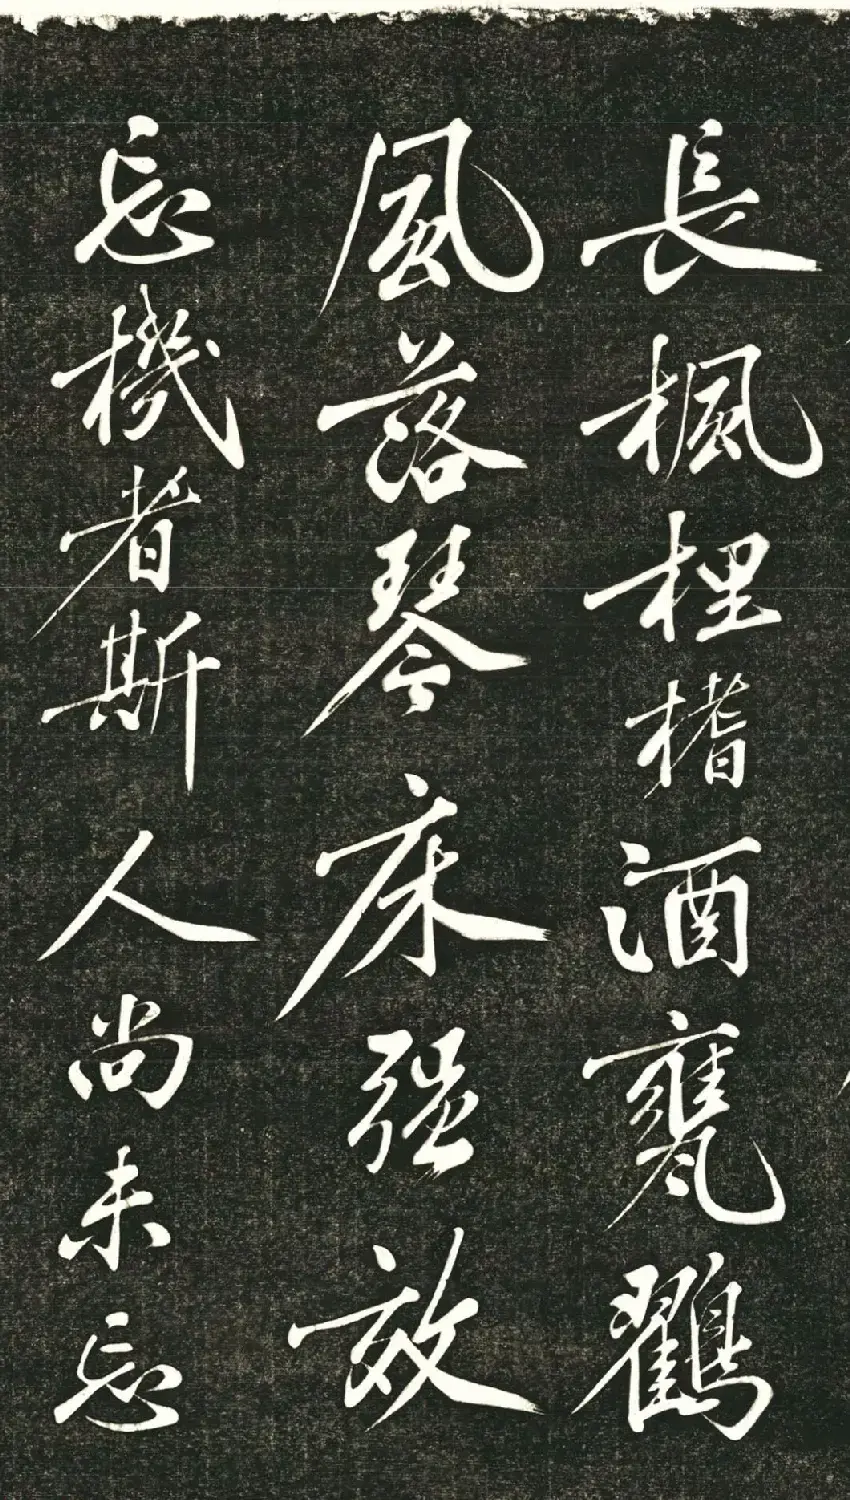 長楓梩榰酒甕鸐
風落琴床强效
忘機者斯人尚未忘